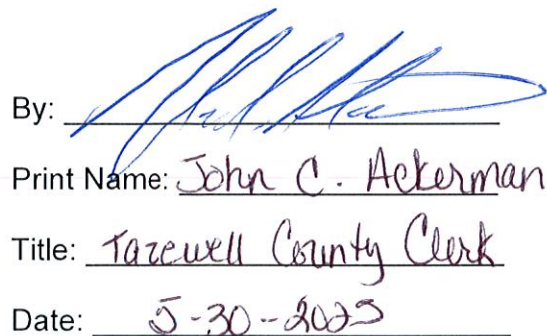 By:
Print Name: John C. Ackerman
Title: Tazewell County Clerk
Date: 5-30-2025